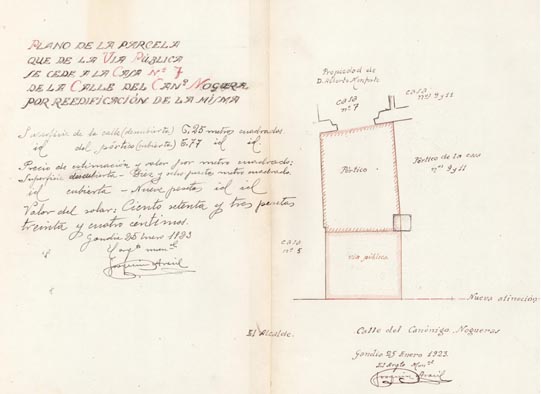 PLANO DE LA PARCELA
QUE DE LA VIA PÚBLICA
SE CEDE A LA CASA Nº 7
DE LA CALLE DEL CANº NOGUERA
POR REEDIFICACIÓN DE LA MISMA
Superficie de la calle (descubierta) 6.25 metros cuadrados.
id del pórtico (cubierta) 6.77 id id
Precio de estimación y valor por metro cuadrado:
Superficie descubierta - Diez y ocho pesetas metro cuadrado
id cubierta - Nueve pesetas id id
Valor del solar: Ciento setenta y tres pesetas
treinta y cuatro centimos.
Gandia 25 enero 1923
El arqº munˡ
Joaquin Arául
El Alcalde.
Propiedad de
D. Alberto
casa
nº 7
casa
nº 9 y 11
Pórtico
Pórtico de la casa
nº 9 y 11
casa
nº 5
via pública
Nueva alineación
Calle del Canónigo Nogueras
Gandia 25 Enero 1923.
El Arqto Munˡ
Joaquin Arául